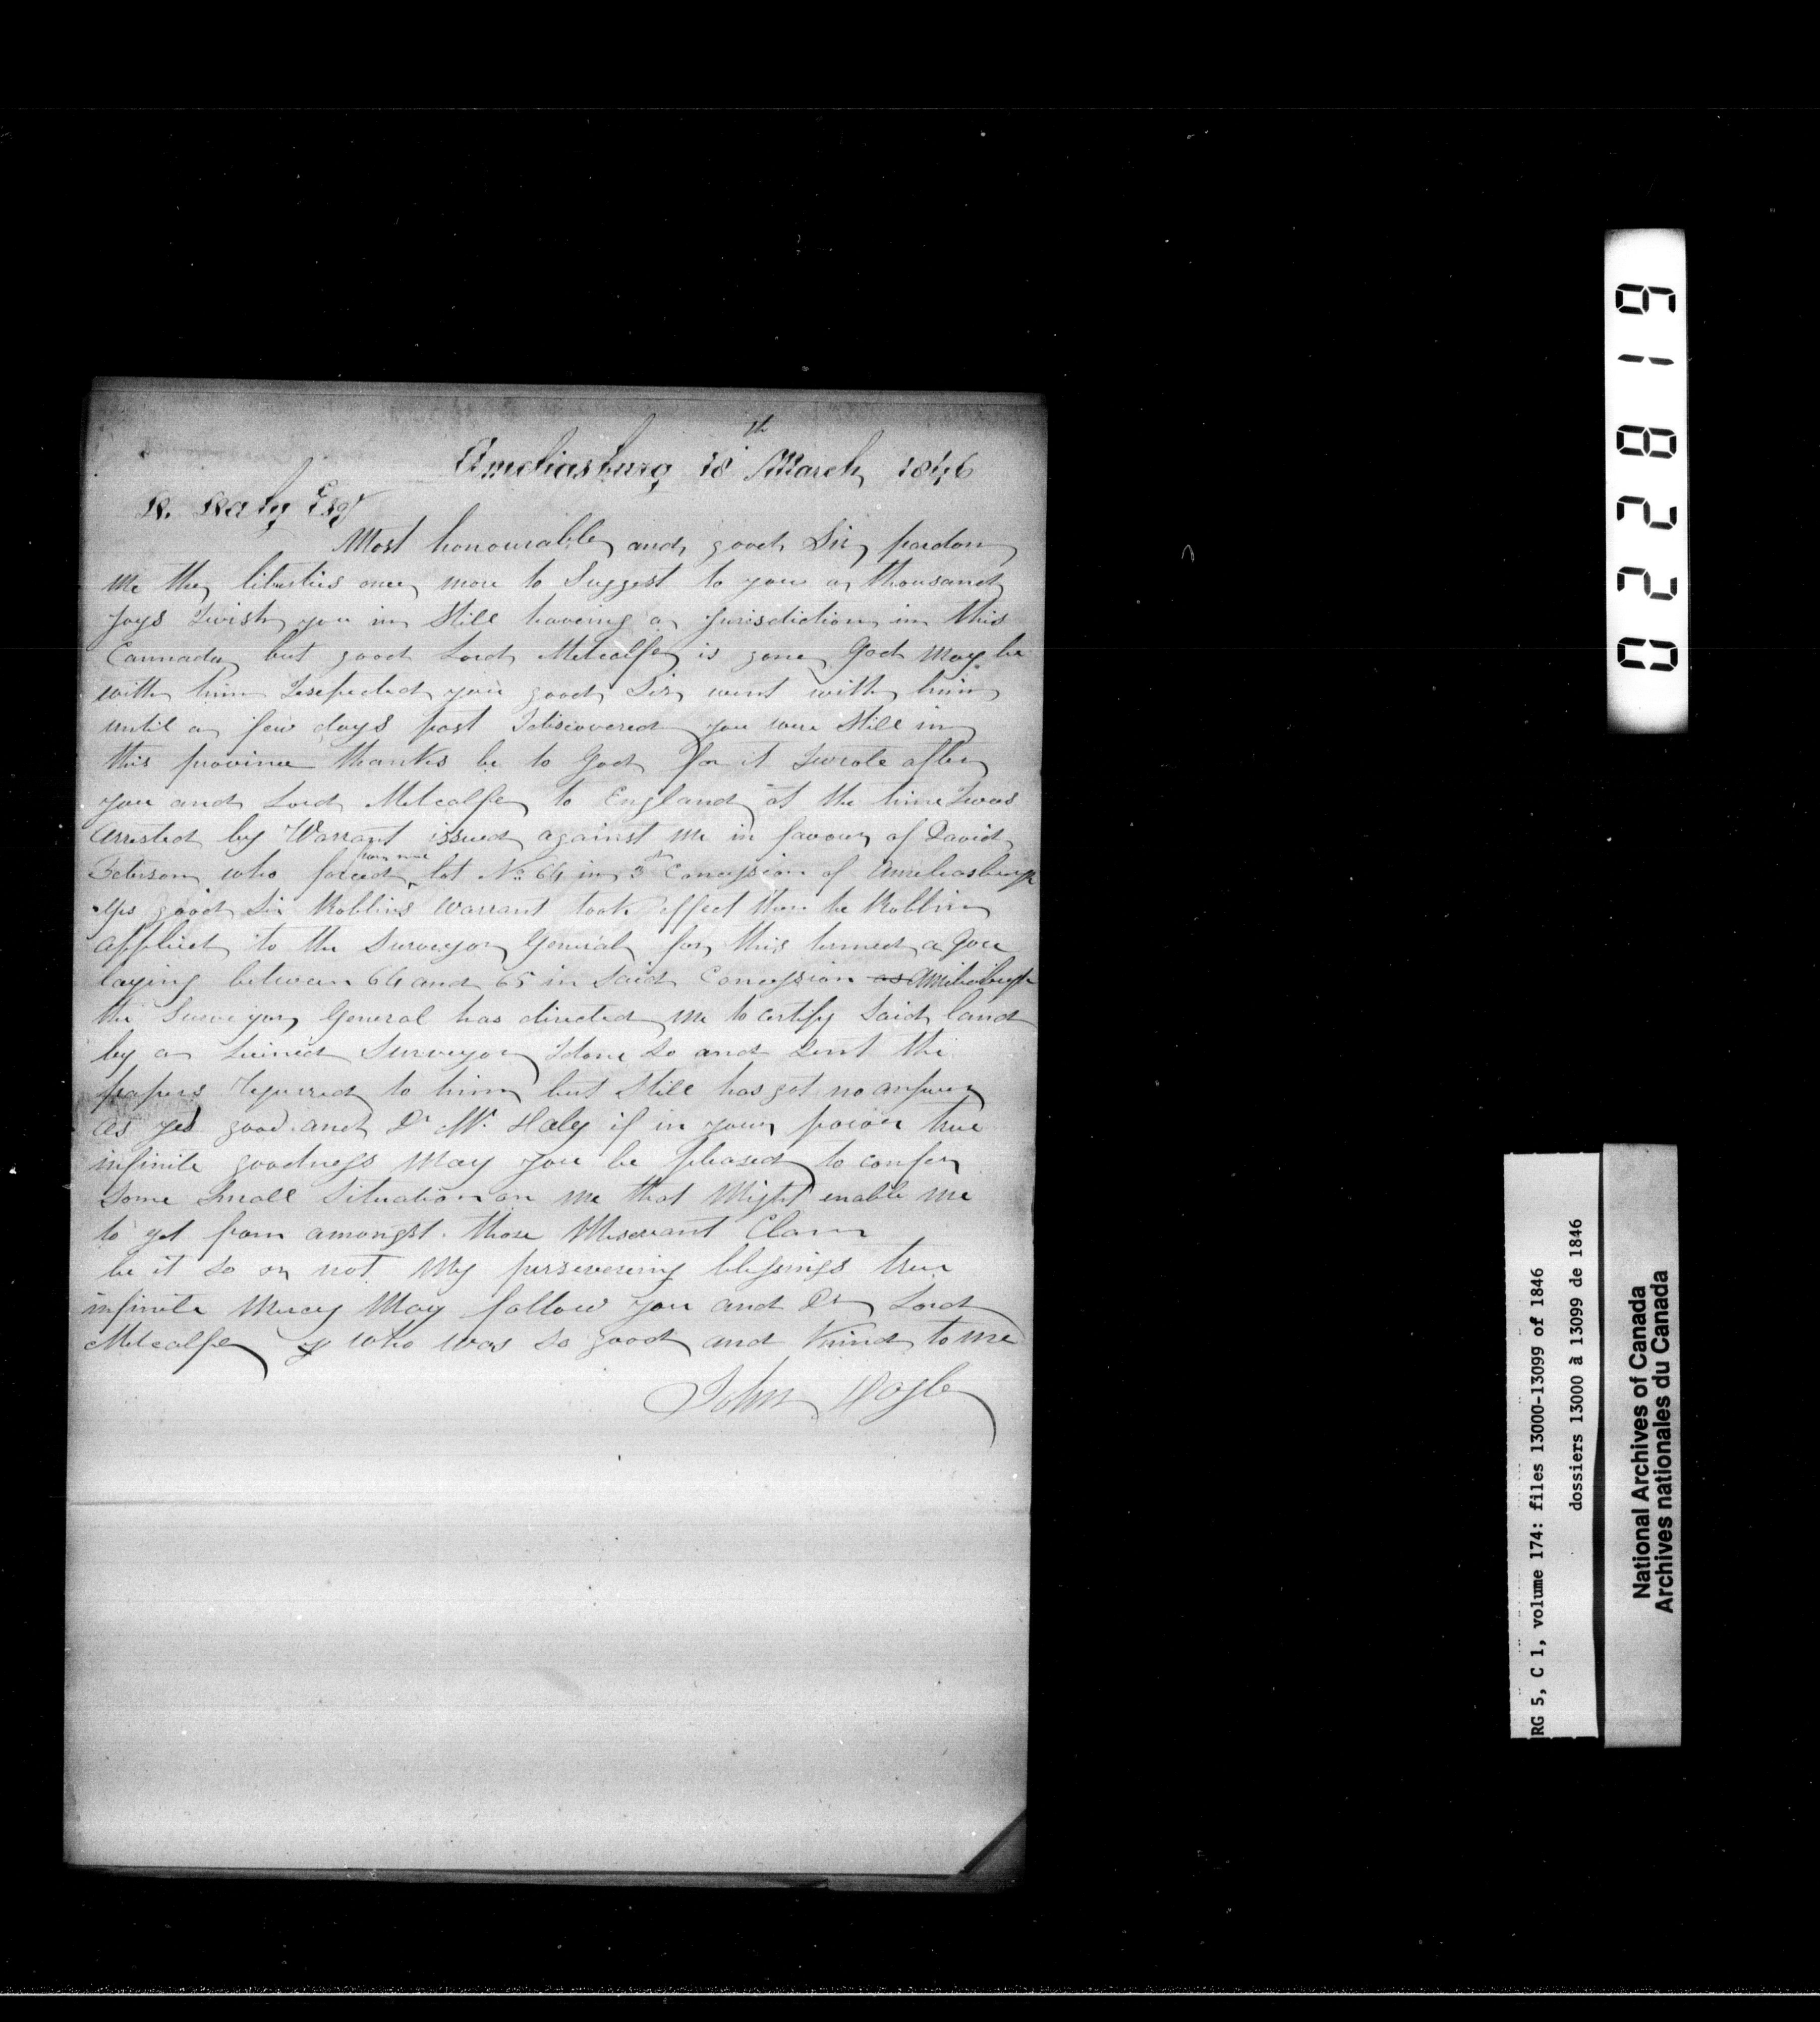 Ameliasburg 18th March 1846
R. Raly Esqr
Most honourable and good Sir pardon
me the liberties once more to Suggest to your a thousand
joys I wish you in Still haveing a jurisdiction in this
Cannada but good Lord Metcalfe is gone God may be
with him I expected you good Sir went with him
until a few days past I discovered you were Still in
this province thanks be to God for it I wrote after
you and Lord Metcalfe to England at the time I was
arrested by Warrant issued against me in favour of David
Peterson who forced from me lot No 64 in 3d Concession of Ameliasburgh
yes good Sir Roblins Warrant took effect then he Roblin
applied to the Surveyor General for this termed a Gore
laying between 64 and 65 in Said Concession as Ameliasburgh
the Surveyor General has directed me to certify Said land
by a Lisined Surveyor I done So and Sent the
papers required to him but Still has got no answer
as yed good and Dr Mr. Haly if in your power true
infinite goodness May you be pleased to confer
Some Small Situation on me that Might enable me
to get from amongst those Miscreant Clann
be it So or not My persevering blessings true
infinite Mercy May follow you and Dr Lord
Metcalfe who was So good and Kind to me
John Hogle
02 28 19
RG 5, C 1, volume 174: files 13000-13099 of 1846
dossiers 13000 à 13099 de 1846
National Archives of Canada
Archives nationales du Canada